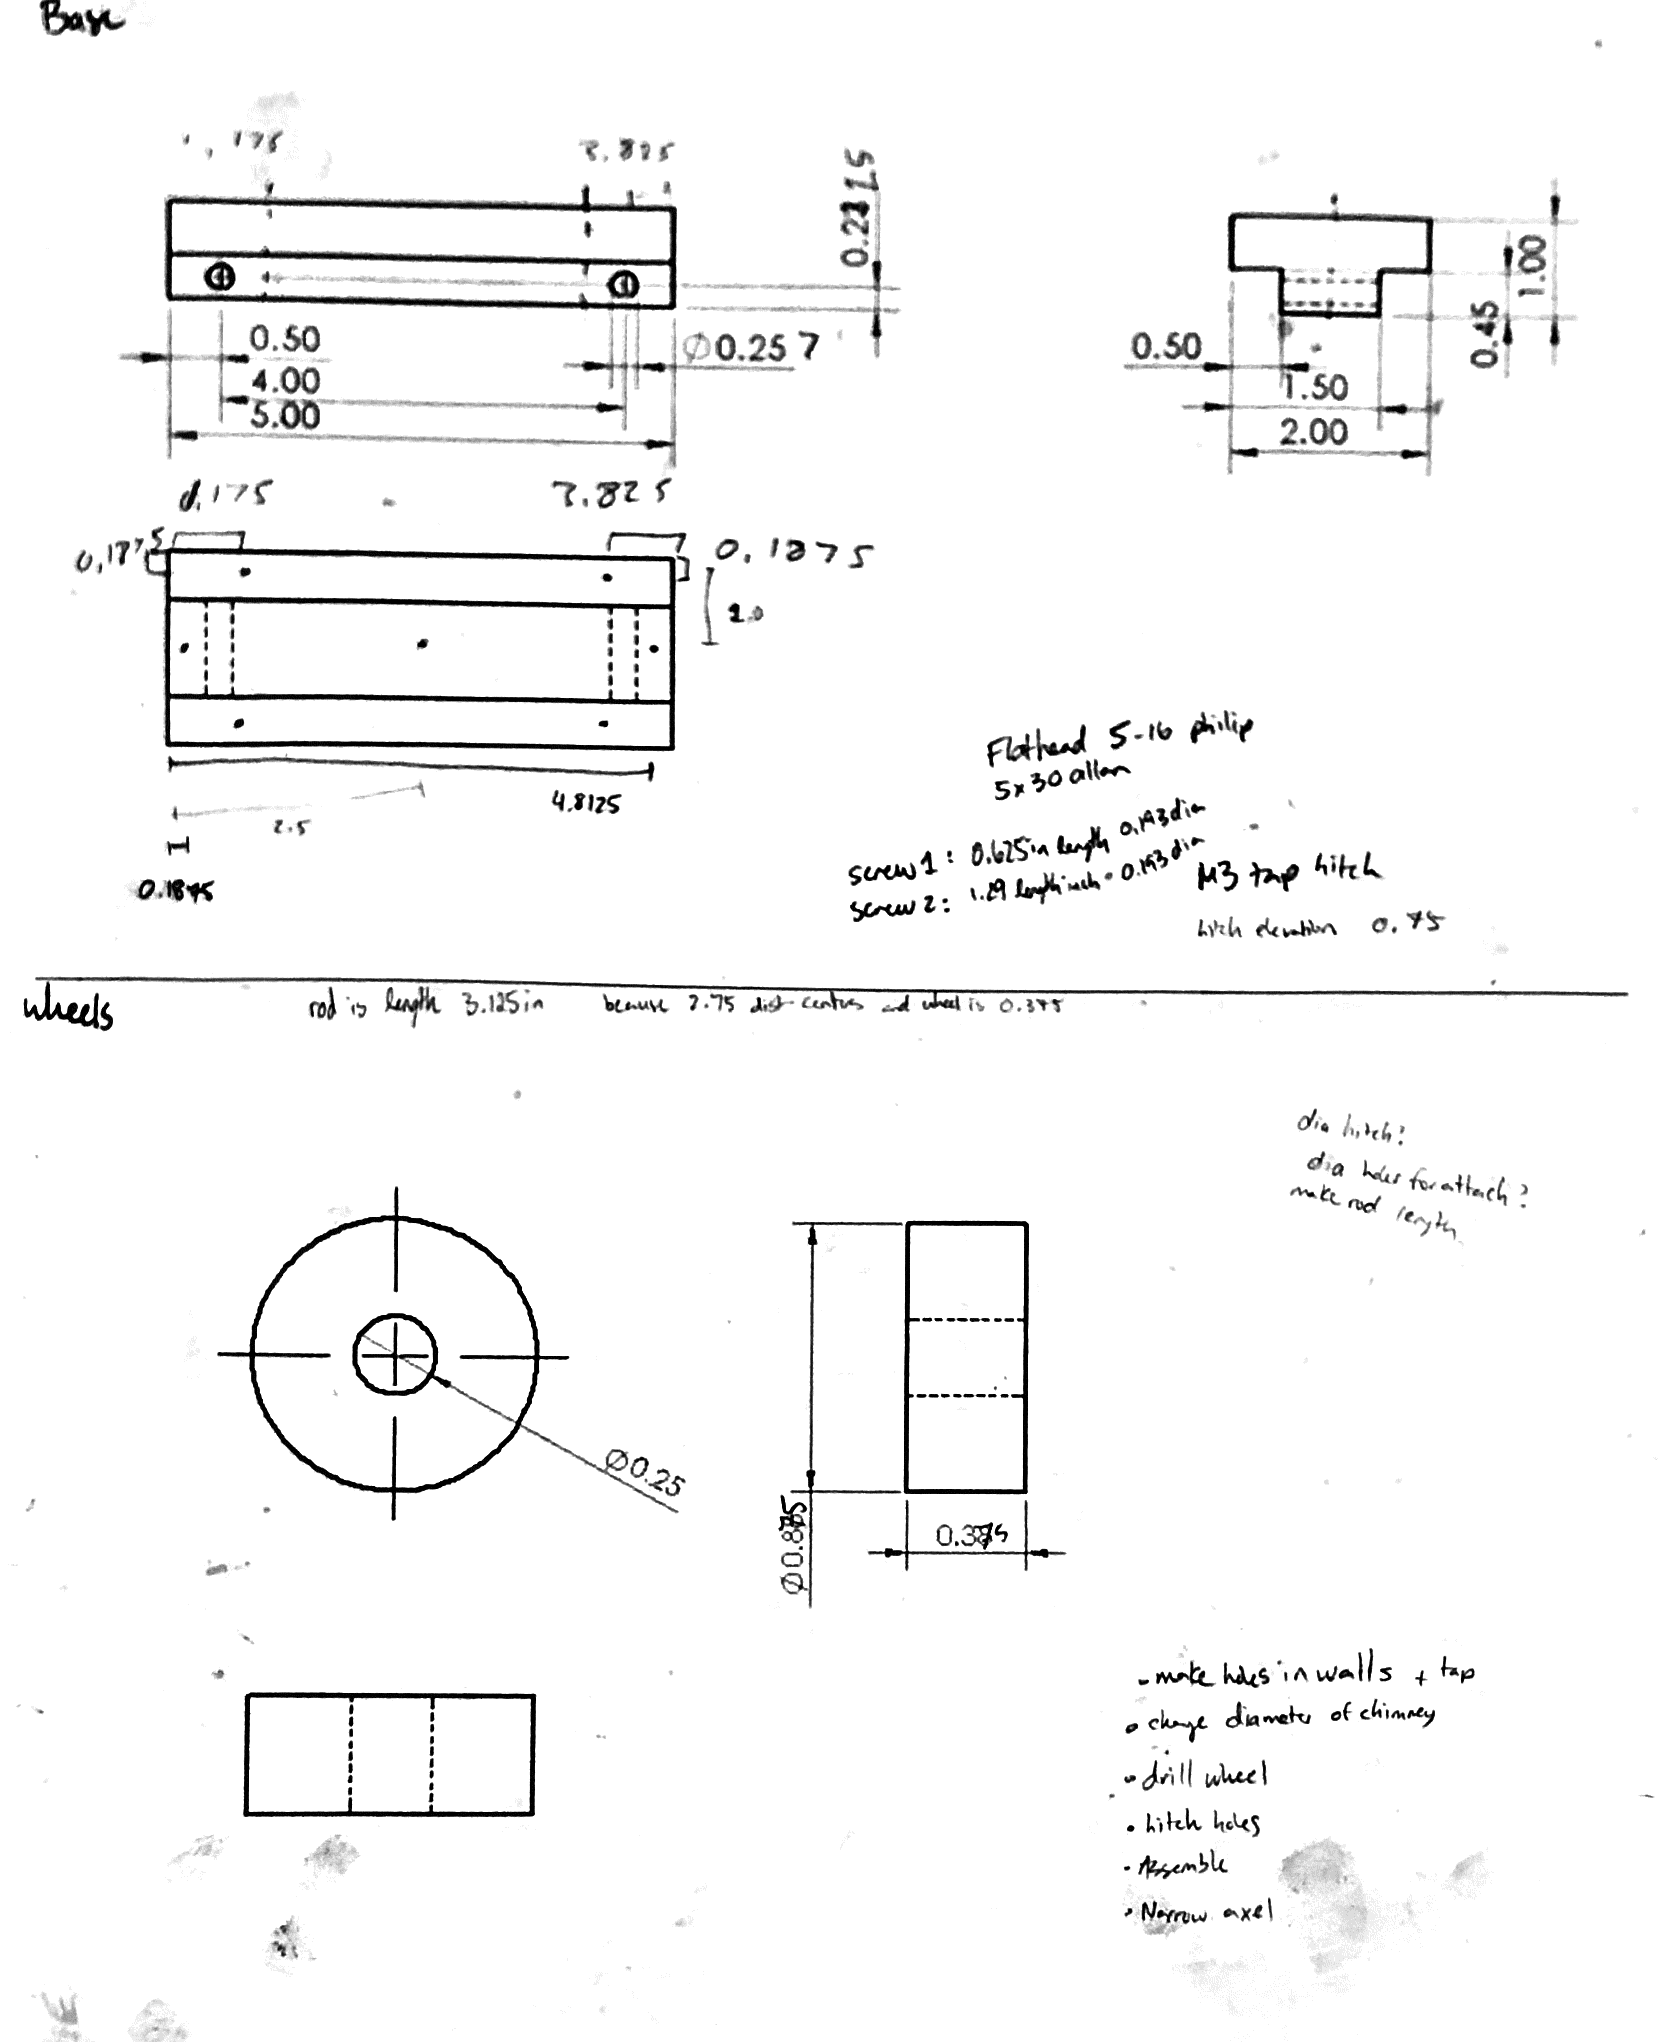 Base
.175
3.825
0.50
4.00
5.00
Ø0.257
0.50
1.50
2.00
0.45
1.00
3.825
0.1875
0.1875
1.0
4.8125
2.5
0.1875
Flathead 5-16 philip
5x30 allan
screw 1: 0.625in length 0.193 dia
screw 2: 1.29 length inch 0.193 dia
M3 tap hitch
hitch elevation 0.75
wheels
rod is length 3.125in because 2.75 dist centres and wheel is 0.375
dia hitch?
dia holes for attach?
make rod length
Ø0.25
Ø0.875
0.375
- make holes in walls + tap
• change diameter of chimney
- drill wheel
• hitch holes
• Assemble
• Narrow axel